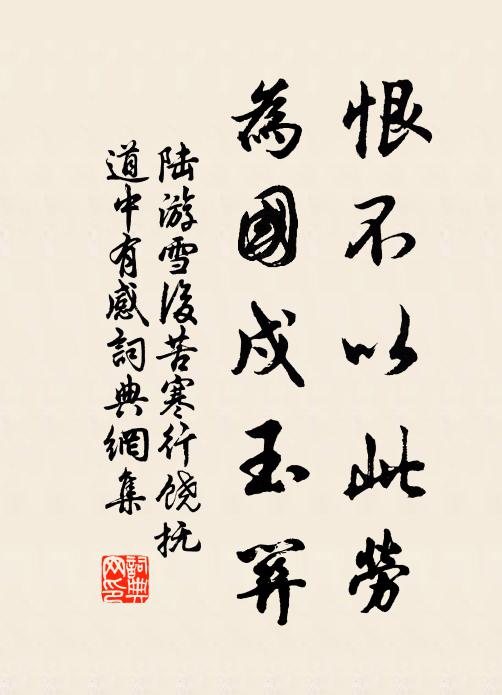 恨不以此勞
為國戍玉關
陆游雪後苦寒行饶抚
道中有感詞典網集
詞典
网印